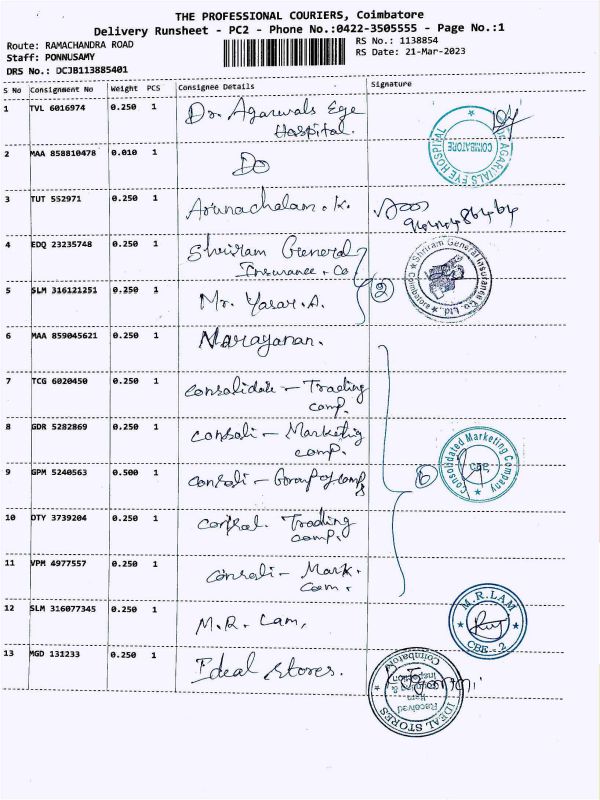 THE PROFESSIONAL COURIERS, Coimbatore
Delivery Runsheet - PC2 - Phone No.:0422-3505555 - Page No.:1
Route: RAMACHANDRA ROAD RS No.: 1138854
Staff: PONNUSAMY RS Date: 21-Mar-2023
DRS No.: DCJB113885401
S No Consignment No Weight PCS Consignee Details Signature
1 TVL 6016974 0.250 1 Dr. Agarwals Eye
Hospital.
AGARWALS EYE HOSPITAL
COIMBATORE
2 MAA 858810478 0.010 1 DO
3 TUT 552971 0.250 1 Arunachalam . K.
4 EDQ 23235748 0.250 1 Shriram General
Insurance . Co
Shriram General Insurance Co. Ltd.
Coimbatore
5 SLM 316121251 0.250 1 Mr. Yasar . A. 2
6 MAA 859045621 0.250 1 Narayanan.
7 TCG 6020450 0.250 1 Consolidate - Trading
comp.
8 GDR 5282869 0.250 1 consoli - Marketing
comp.
Consolidated Marketing Company
CBE
9 GPM 5240563 0.500 1 consoli - Group of comp 6
10 OTY 3739204 0.250 1 consol. Trading
comp.
11 VPM 4977557 0.250 1 consoli - Mark.
Com.
12 SLM 316077345 0.250 1 M.R. Lam,
M.R.LAM
CBE - 2
13 MGD 131233 0.250 1 Ideal Stores.
Coimbatore
Received
IDEAL STORES